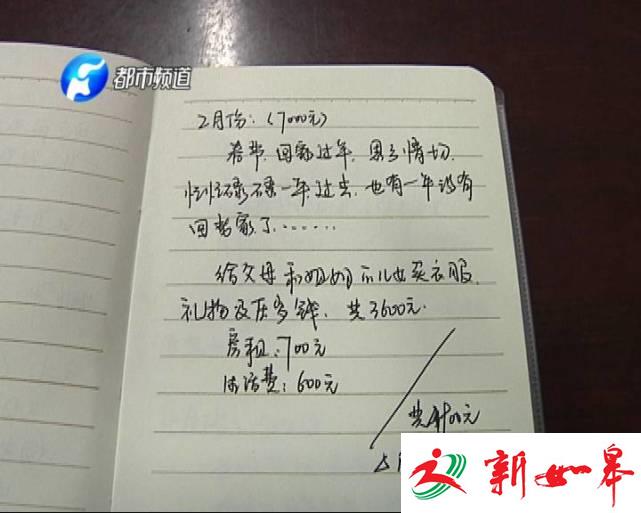 都市频道
2月份:(7000元)
春节,回家过年,思乡情切,
忙忙碌碌一年过去,也有一年没有
回老家了……
给父母和姐姐小儿女买衣服,
礼物及压岁钱,共3600元.
房租:700元
生活费:600元
共4900元
新如皋